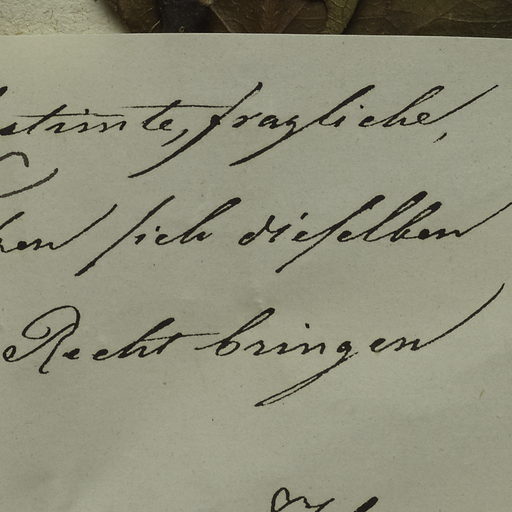 stimte, fragliche,
en sich dieselben
Recht bringen